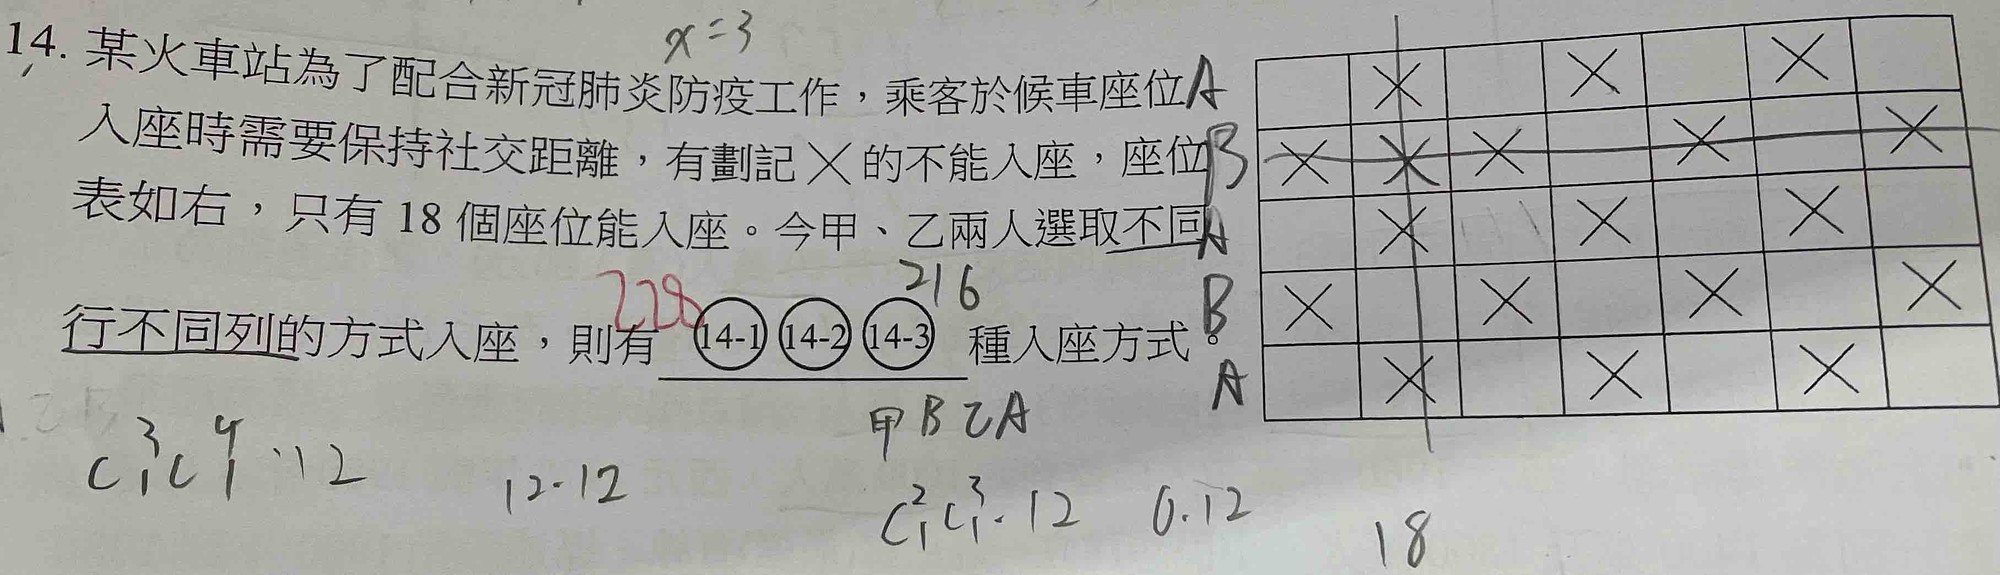 x=3
14. 某火車站為了配合新冠肺炎防疫工作，乘客於候車座位 A
入座時需要保持社交距離，有劃記╳的不能入座，座位 B
表如右，只有 18 個座位能入座。今甲、乙兩人選取不同 A
228 216
行不同列的方式入座，則有 14-1 14-2 14-3 種入座方式。 B
A
甲B乙A
C³₁C⁴₁·12 12·12 C²₁C³₁·12 6·12 18